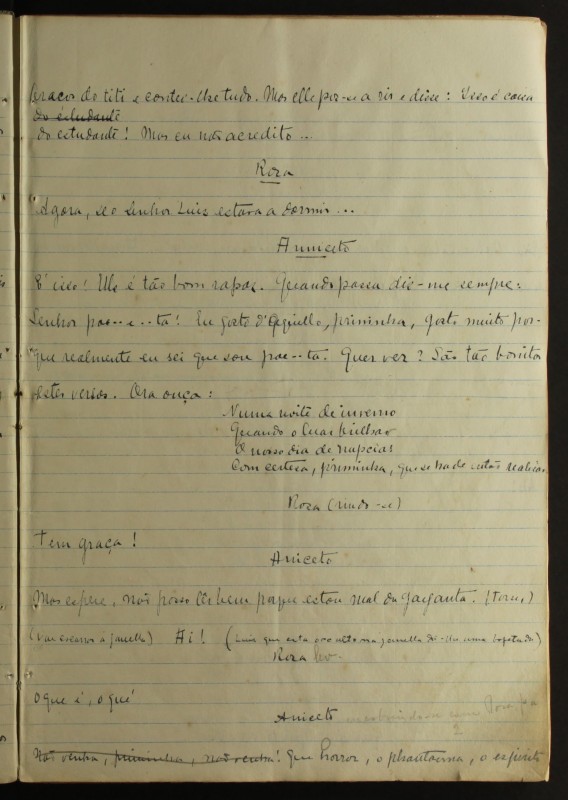 braços do titi e contei-lhe tudo. Mas elle poz-se a rir e disse: Isso é coisa
do estudante
do estudante! Mas eu não acredito...
Roza
Agora, se o senhor Luis estava a dormir...
Aniceto
E' isso! Elle é tão bom rapaz. Quando passa diz-me sempre:
Senhor poe--e--ta! Eu gosto d'aquillo, priminha, gosto muito por-
que realmente eu sei que sou poe--ta. Quer ver? São tão bonitos
estes versos. Ora ouça:
Numa noite de inverno
Quando o luar brilhar
O nosso dia de nupcias
Com certeza, priminha, que se ha de então realizar.
Roza (rindo-se)
Tem graça!
Aniceto
Mas espere, não posso ler bem porque estou mal da garganta. (Torce,)
(vae escarrar á janella) Ai! (Luis que está occulto na janella dá-lhe uma bofetada)
Roza
O que é, o quê
Aniceto
2
Não venha, priminha, não venha! Que horror, o phantasma, o espirito